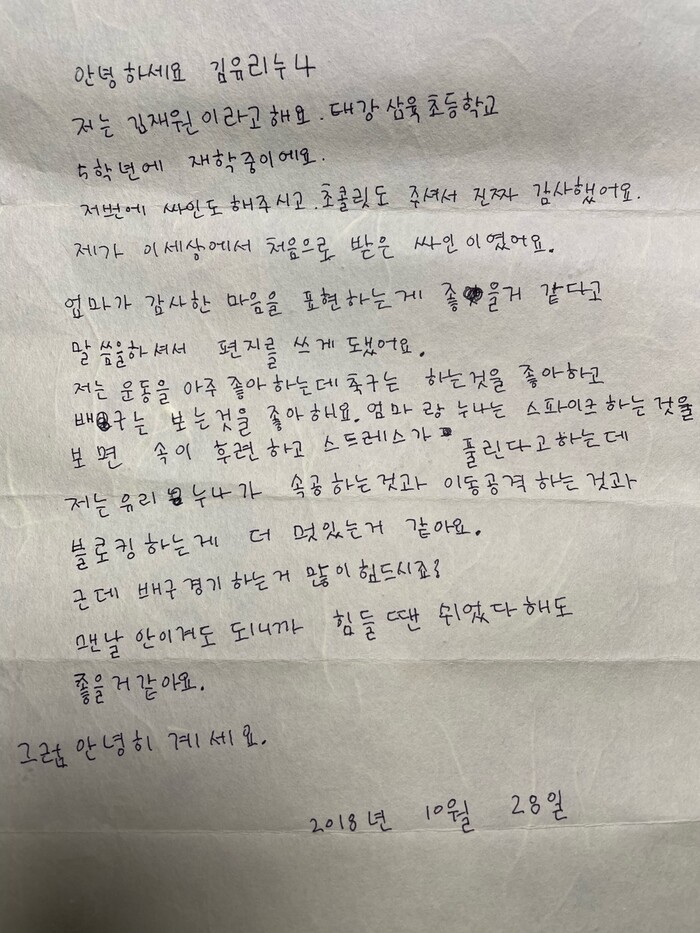 안녕하세요 김유리누나
저는 김재원이라고해요. 태강삼육초등학교
5학년에 재학중이에요.
저번에 싸인도 해주시고. 초콜릿도 주셔서 진짜 감사했어요.
제가 이세상에서 처음으로 받은 싸인이였어요.
엄마가 감사한 마음을 표현하는게 좋을거 같다고
말씀을하셔서 편지를 쓰게 됐어요.
저는 운동을 아주 좋아하는데 축구는 하는것을 좋아하고
배구는 보는것을 좋아해요. 엄마랑 누나는 스파이크하는것을
보면 속이 후련하고 스트레스가 풀린다고하는데
저는유리 누나가 속공하는것과 이동공격하는것과
블로킹하는게 더 멋있는거 같아요.
근데 배구경기하는거 많이힘드시죠?
맨날 안이겨도 되니까 힘들땐 쉬었다해도
좋을거같아요.
그럼 안녕히 계세요.
2018년 10월 28일